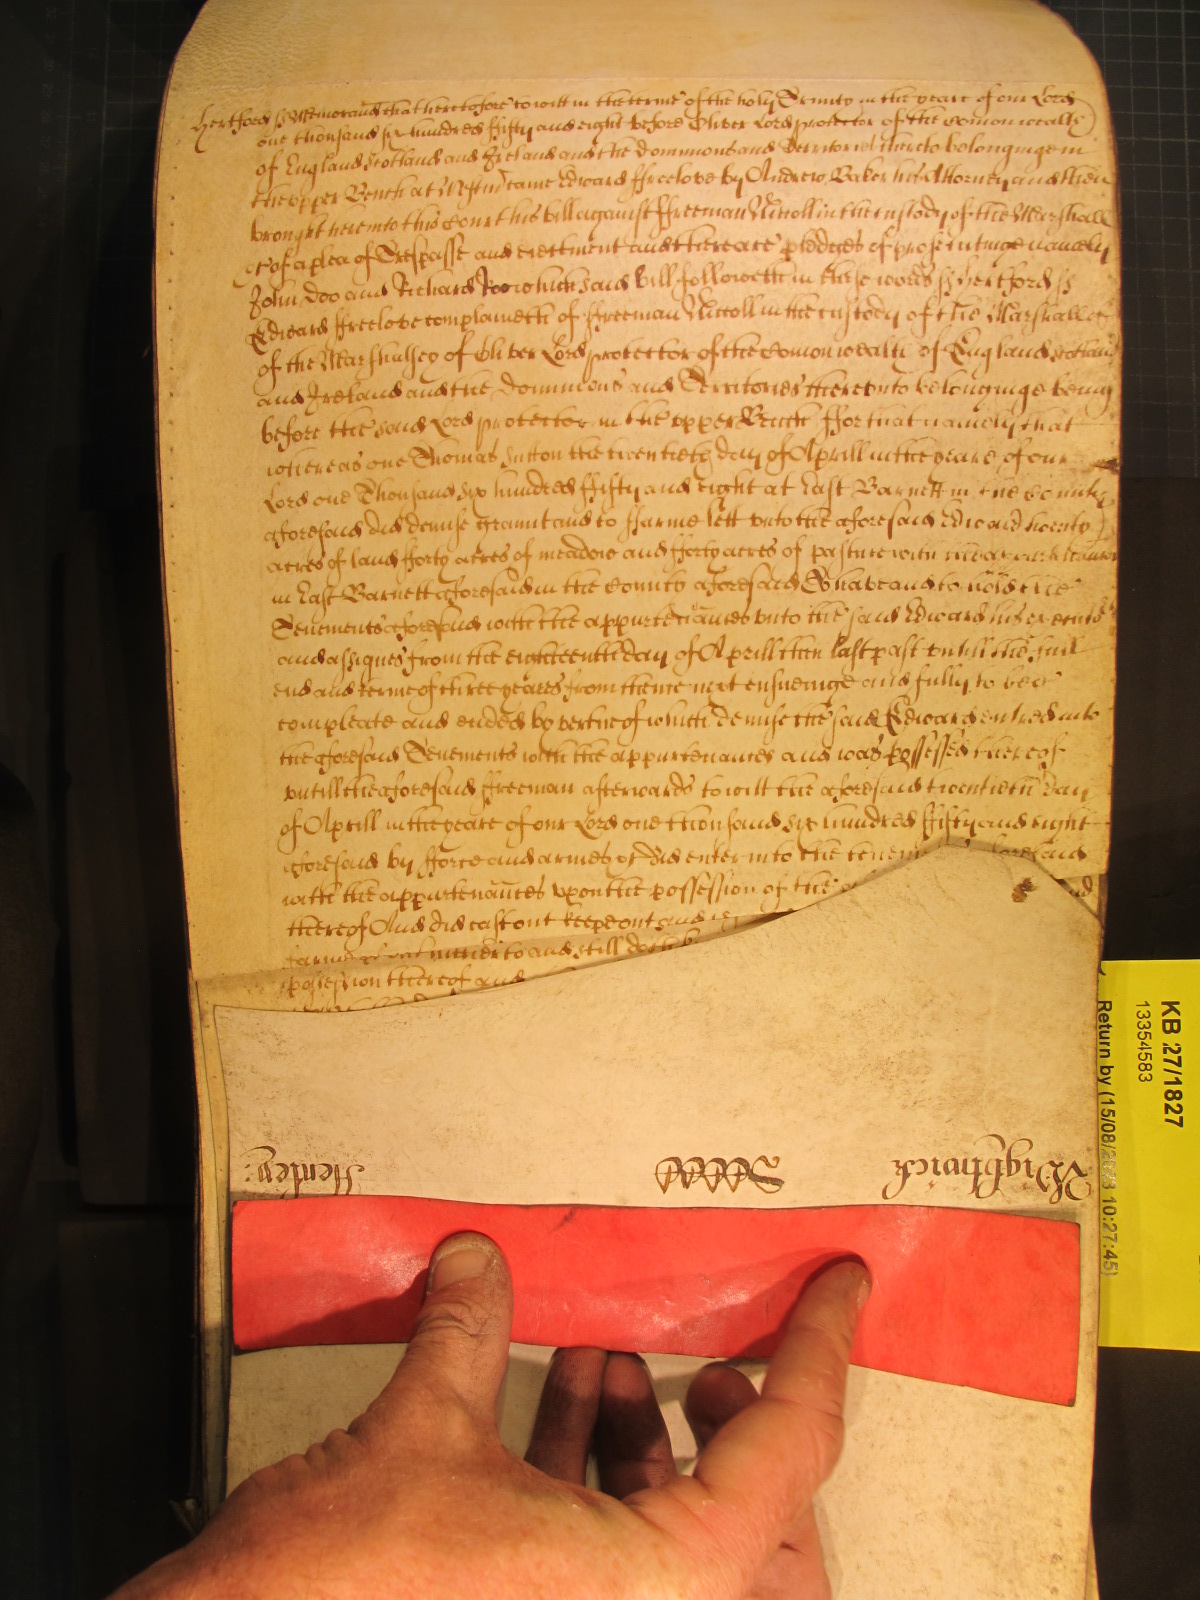 Hertford ss Memorand that heretofore to witt in the terme of the holy Trinity in the yeare of our Lord
one thousand six hundred fifty and eight before Oliver Lord protector of the Comonwealth
of England Scotland and Ireland and the dominions and Territories thereto belonginge in
the upper Bench at Westm came Edward ffreelove by Andrew Baker his Attorney and then
brought here into this Court his bill against ffreeman Nicoll in the custody of the Marshall
&c of a plea of Trespasse and eiectment and there are pledges of prosecutinge namely
John Doo and Richard Roo which said bill followeth in these words ss Hertford ss
Edward ffreelove complaineth of ffreeman Nicoll in the custody of the Marshall
of the Marshalsey of Oliver Lord protector of the Comonwealth of England Scotland
and Ireland and the dominions and Territories thereunto belonginge being
before the said Lord protector in the upper Bench ffor that namely that
whereas one Thomas Sutton the twentieth day of Aprill in the yeare of our
Lord one Thousand six hundred fifty and eight at East Barnett in the County
aforesaid did demise graunt and to ffarme lett unto the aforesaid Edward twenty
acres of land fforty acres of meadow and fforty acres of pasture with the appurtenances
in East Barnett aforesaid in the County aforesaid To have and to hold the
Tenements aforesaid with the appurtenances unto the said Edward his
and assignes from the eighteenth day of Aprill then last past untill the full
end and terme of three yeares from thence next ensueinge and fully to bee
compleate and ended by vertue of which demise the said Edward entred into
the aforesaid Tenements with the appurtenances and was possessed thereof
untill the aforesaid ffreeman afterwards to witt the aforesaid twentieth day
of Aprill in the yeare of our Lord one thousand six hundred fifty and eight
aforesaid by fforce and armes &c did enter into the aforesaid
with the appurtenances upon the possession of the
thereof And did east out keepe out and
to and still doth
possession thereof and
Henley:
Wightwick
KB 27/1827
13354583
Return by (15/08/2023 10:27:45)